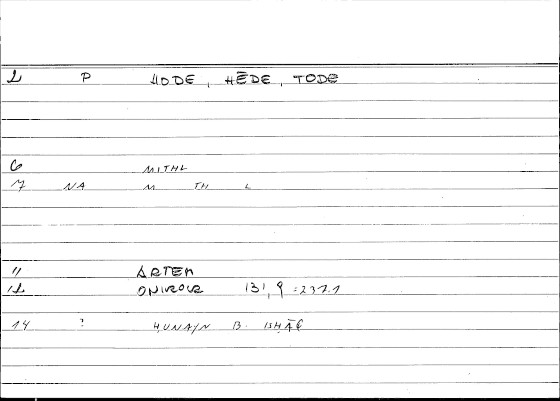 1 P HODE, HĒDE, TODE
6 MITHL
7 NA M TH L
11 ARTEM
12 ONIROCR 131, 9 = 232.1
14 ? ḤUNAYN B. ISḤĀQ